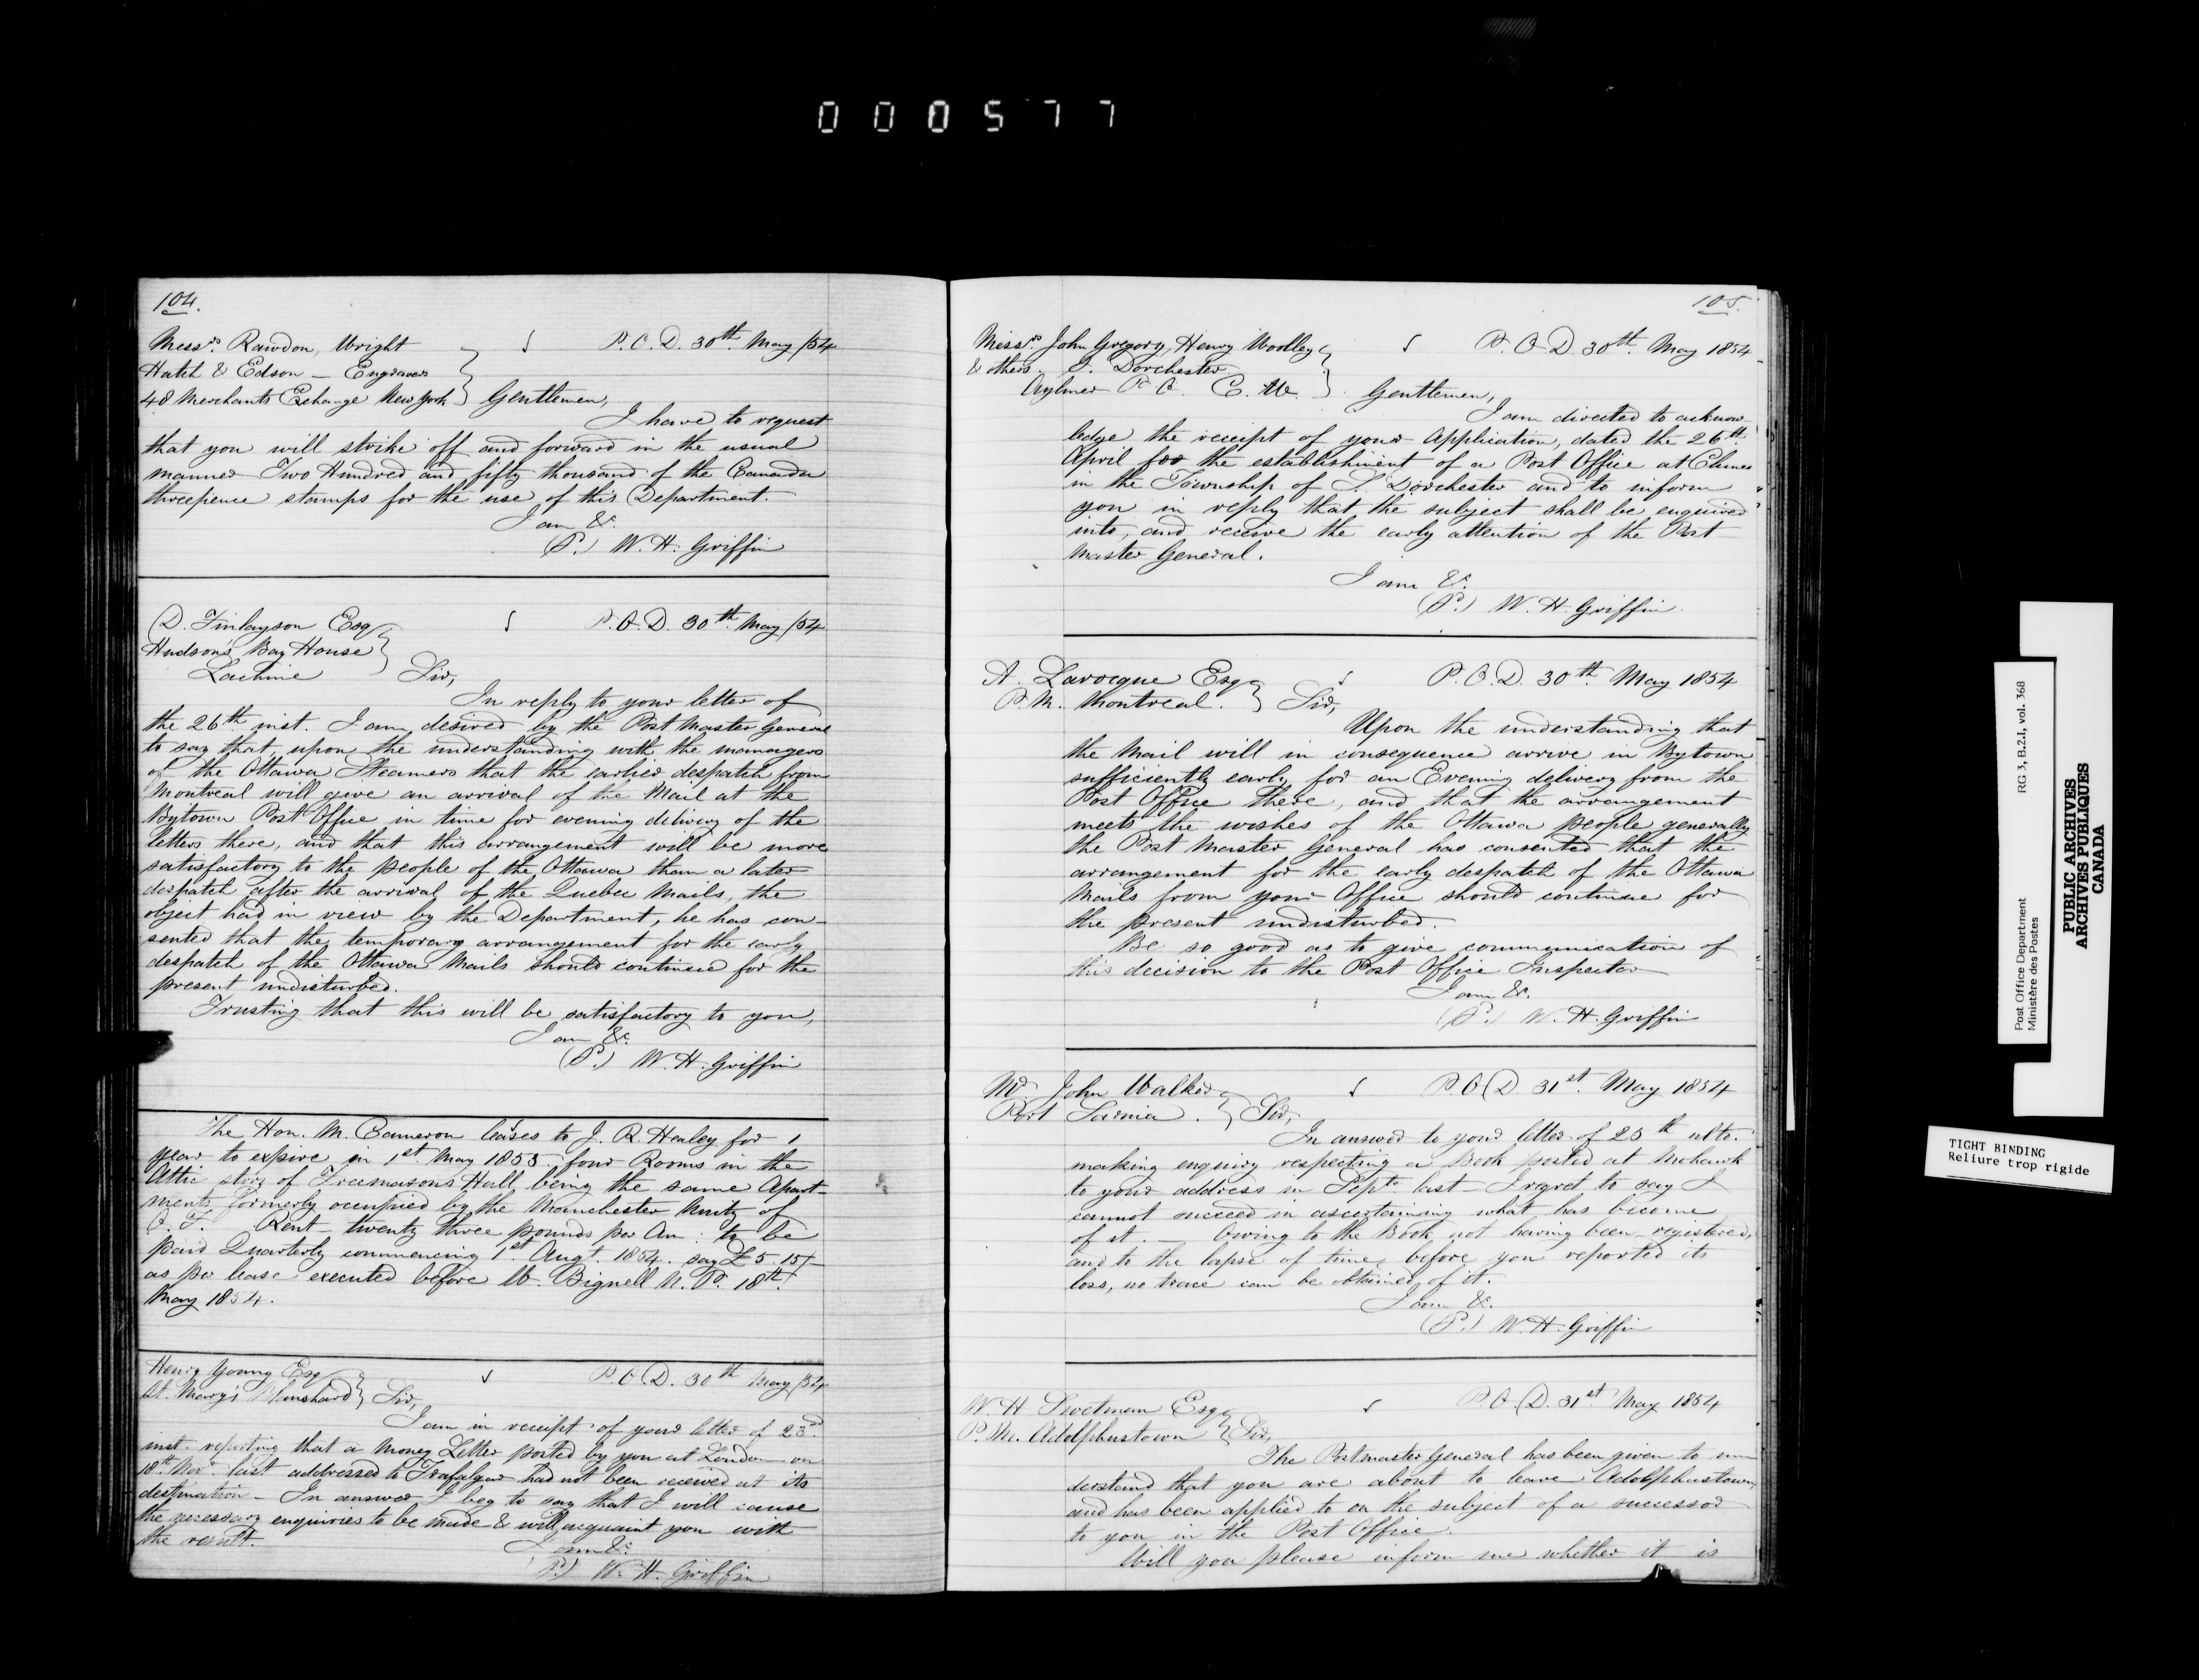 000577
104.
Messrs. Rawdon, Wright
Hatch & Edson — Engravers
48 Merchants Exchange New York
P.O.D. 30th. May /54
Gentlemen,
I have to request
that you will strike off and forward in the usual
manner Two Hundred and fifty thousand of the Canada
threepence stamps for the use of this Department.
I am &c.
(S.) W. H. Griffin
D. Finlayson Esq
Hudson's Bay House
Lachine
P.O.D. 30th May /54
Sir,
In reply to your letter of
the 26th inst. I am desired by the Post Master General
to say that, upon the understanding with the managers
of the Ottawa Steamers that the earlier despatch from
Montreal will give an arrival of the Mail at the
Bytown Post Office in time for evening delivery of the
letters there, and that this arrangement will be more
satisfactory to the people of the Ottawa than a later
despatch after the arrival of the Quebec Mails, the
object had in view by the Department, he has con-
sented that the temporary arrangement for the early
despatch of the Ottawa Mails should continue for the
present undisturbed.
Trusting that this will be satisfactory to you,
I am &c.
(S.) W. H. Griffin
The Hon. M. Cameron leases to J. R. Healey for 1
year to expire on 1st May 1855 four Rooms in the
Attic story of Freemasons Hall being the same Apart-
ments formerly occupied by the Manchester Unity of
O. F. Rent twenty three pounds per An: to be
paid Quarterly commencing 1st Augt. 1854. say £5.15/-
as per lease executed before W. Bignell N. P. 18th
May 1854.
Henry Young Esq
St. Mary's Blanshard
P.O.D. 30th May /54
Sir,
I am in receipt of your letter of 23rd
inst. reporting that a Money Letter posted by you at London on
18th Novr. last addressed to Trafalgar had not been received at its
destination — In answer I beg to say that I will cause
the necessary enquiries to be made & will acquaint you with
the result.
I am &c.
(S.) W. H. Griffin
105.
Messrs John Gregory, Henry Woolley
& others. S. Dorchester
Aylmer P. O. C. W.
P.O.D. 30th. May 1854
Gentlemen,
I am directed to acknow-
ledge the receipt of your Application, dated the 26th
April for the establishment of a Post Office at
in the Township of S. Dorchester and to inform
you in reply that the subject shall be enquired
into, and receive the early attention of the Post
Master General.
I am &c.
(S.) W. H. Griffin.
A. Larocque Esq
P. M. Montreal.
P.O.D. 30th. May 1854
Sir,
Upon the understanding that
the Mail will in consequence arrive in Bytown
sufficiently early for an Evening delivery from the
Post Office there, and that the arrangement
meets the wishes of the Ottawa people generally
the Post Master General has consented that the
arrangement for the early despatch of the Ottawa
Mails from your Office should continue for
the present undisturbed.
Be so good as to give communication of
this decision to the Post Office Inspector
I am &c.
(S.) W. H. Griffin
Mr. John Walker
Port Sarnia.
P.O.D 31st. May 1854
Sir,
In answer to your letter of 25th ulto.
making enquiry respecting a Book posted at Mohawk
to your address in Septr. last — I regret to say I
cannot succeed in ascertaining what has become
of it. — Owing to the Book not having been registered,
and to the lapse of time before you reported its
loss, no trace can be obtained of it.
I am &c.
(S.) W. H. Griffin
W. H. Sweetman Esq
P. M. Adolphustown
P.O.D. 31st. May 1854
Sir,
The Postmaster General has been given to un-
derstand that you are about to leave Adolphustown,
and has been applied to on the subject of a successor
to you in the Post Office.
Will you please inform me whether it is
PUBLIC ARCHIVES
ARCHIVES PUBLIQUES
CANADA
Post Office Department RG 3, B.2.I, vol. 368
Ministère des Postes
TIGHT BINDING
Reliure trop rigide